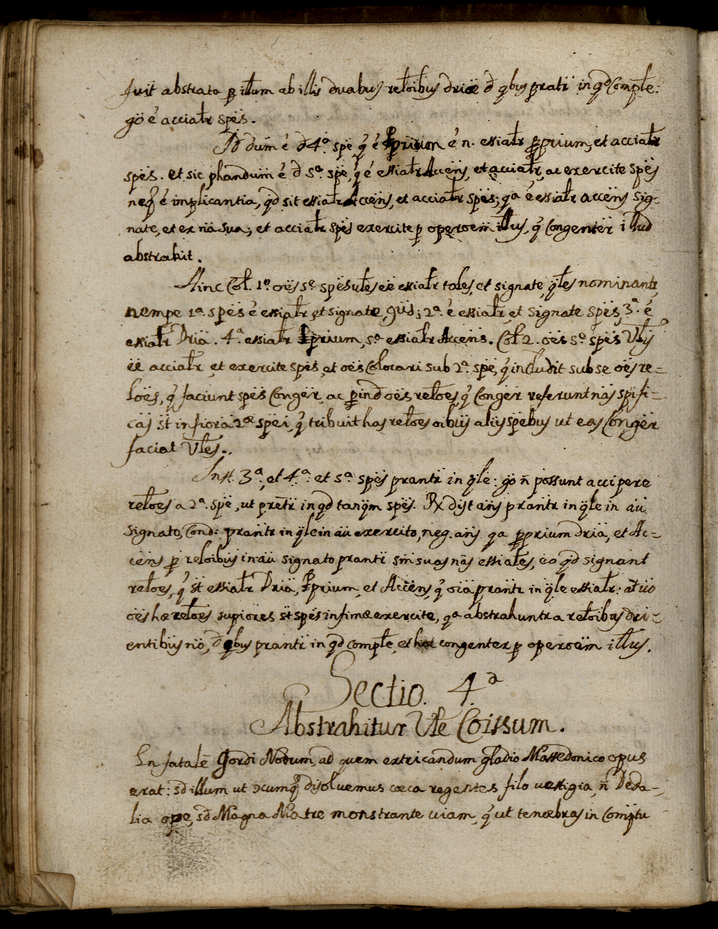 fuit abstrata p illum ab illis duabus reloibus driae d qbus pratr in qd Comple:
go é acciatr spēs.
Id dum é d 4ª spe q é Pprium é n. essiatr pprium, et acciatr
spēs. et sic phandum é d 5ª spe, q é essiatr Accens, et acciatr, ac exercite spēs
neq é implicantia, qd sit essiatr Accens, et acciatr spēs; qª é essiatr accens sig-
nate, et ex nā sua; et acciatr spēs exercite p operoem illus, q Congenter illud
abstrahit.
Hinc Col. 1º oēs 5º spēs utes eē essiatr tales, et signate, qtes nominantr
nempe 1ª spēs é essiatr et signate gūs; 2ª é essiatr et signate spēs, 3ª é
essiatr Dria. 4ª essiatr Pprium, 5ª essiatr Accens. Col 2. oēs 5º spēs Vtis
eē acciatr, et exercite spēs, at oēs Colocari sub 2ª spe, q includit sub se oēs re-
loēs, q faciunt spēs Conger, ac p ind oēs reloes, q Conger referunt nās spifi-
cas st infiora 2ª spei, q tribuit has reloes oibus aliis spebus ut eas Conger
faciat Vtes.
Inst. 3ª, et 4ª et 5ª spēs prantr in qle: go n possunt accipere
reloes a 2ª spe, ut pretr in qd tanqm spēs. Rx dist ans prantr in qle in aū
signato, Cons: prantr in qle in aū exercito, neg. ans qª pprium dria, et Ac-
cens p reloibus in aū signato prantr sm suas nās essiales, eo qd signant
reloes, q st essiatr Dria, Pprium, et Accens, q oia prantr in qle essiatr: at uo
oēs hae reloes supiores st spēs infimae exercite, qª abstrahuntr a reloibus dri-
entibus nō, d qbus prantr in qd comple, et hoc congenter p operoem illus.
Sectio. 4.ª
Abstrahitur Vle Coissum.
En fatale Gordi Nodum, ad quem extricandum gladio Massedonico opus
erat: sd illum ut cumq disoluemus caeca regentes filo uestigia, n Deda-
lia ope, sd Magna Matre monstrante uiam, q ut tenebras in Comptu